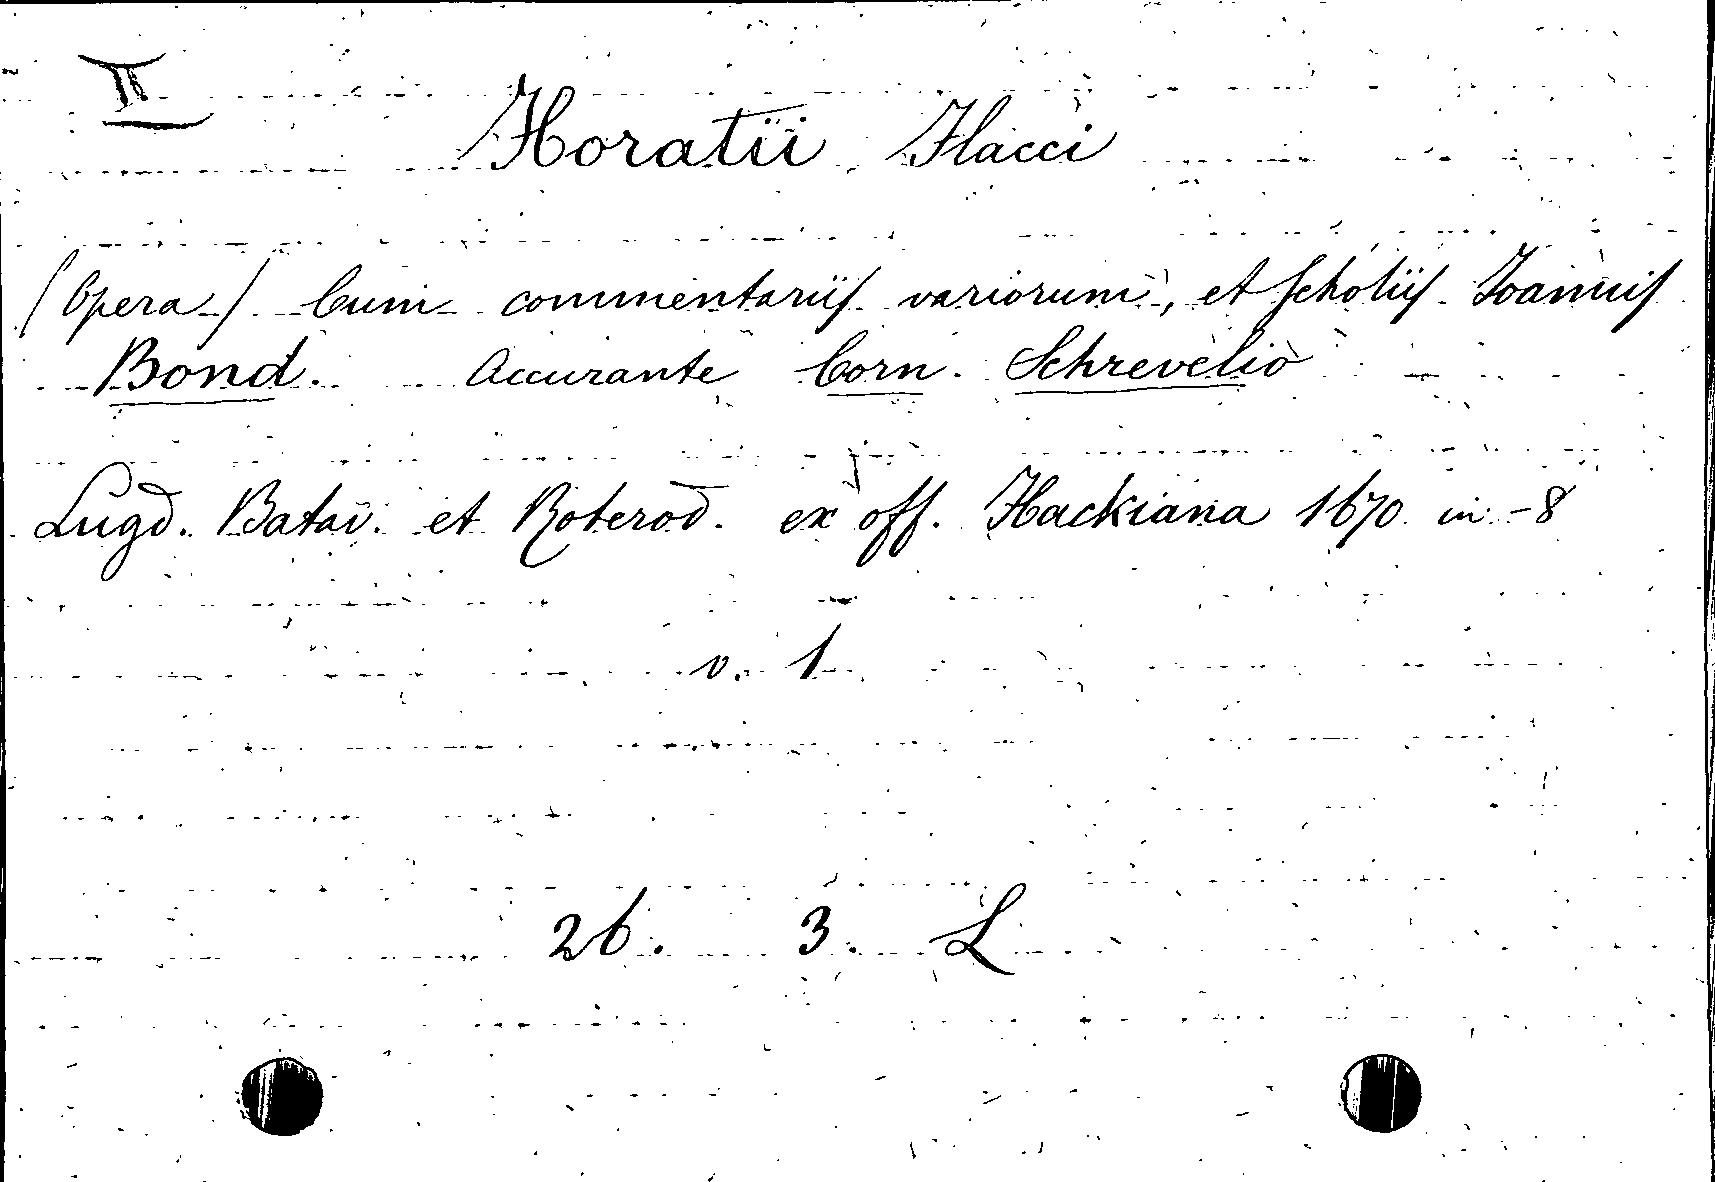 II
Horatii Flacci
(Opera) Cum commentariis variorum, et scholiis Joannis
Bond. Accurante Corn. Schrevelio
Lugd. Batav. et Roterod. ex off. Hackiana 1670 in-8
v. 1
26. 3. L